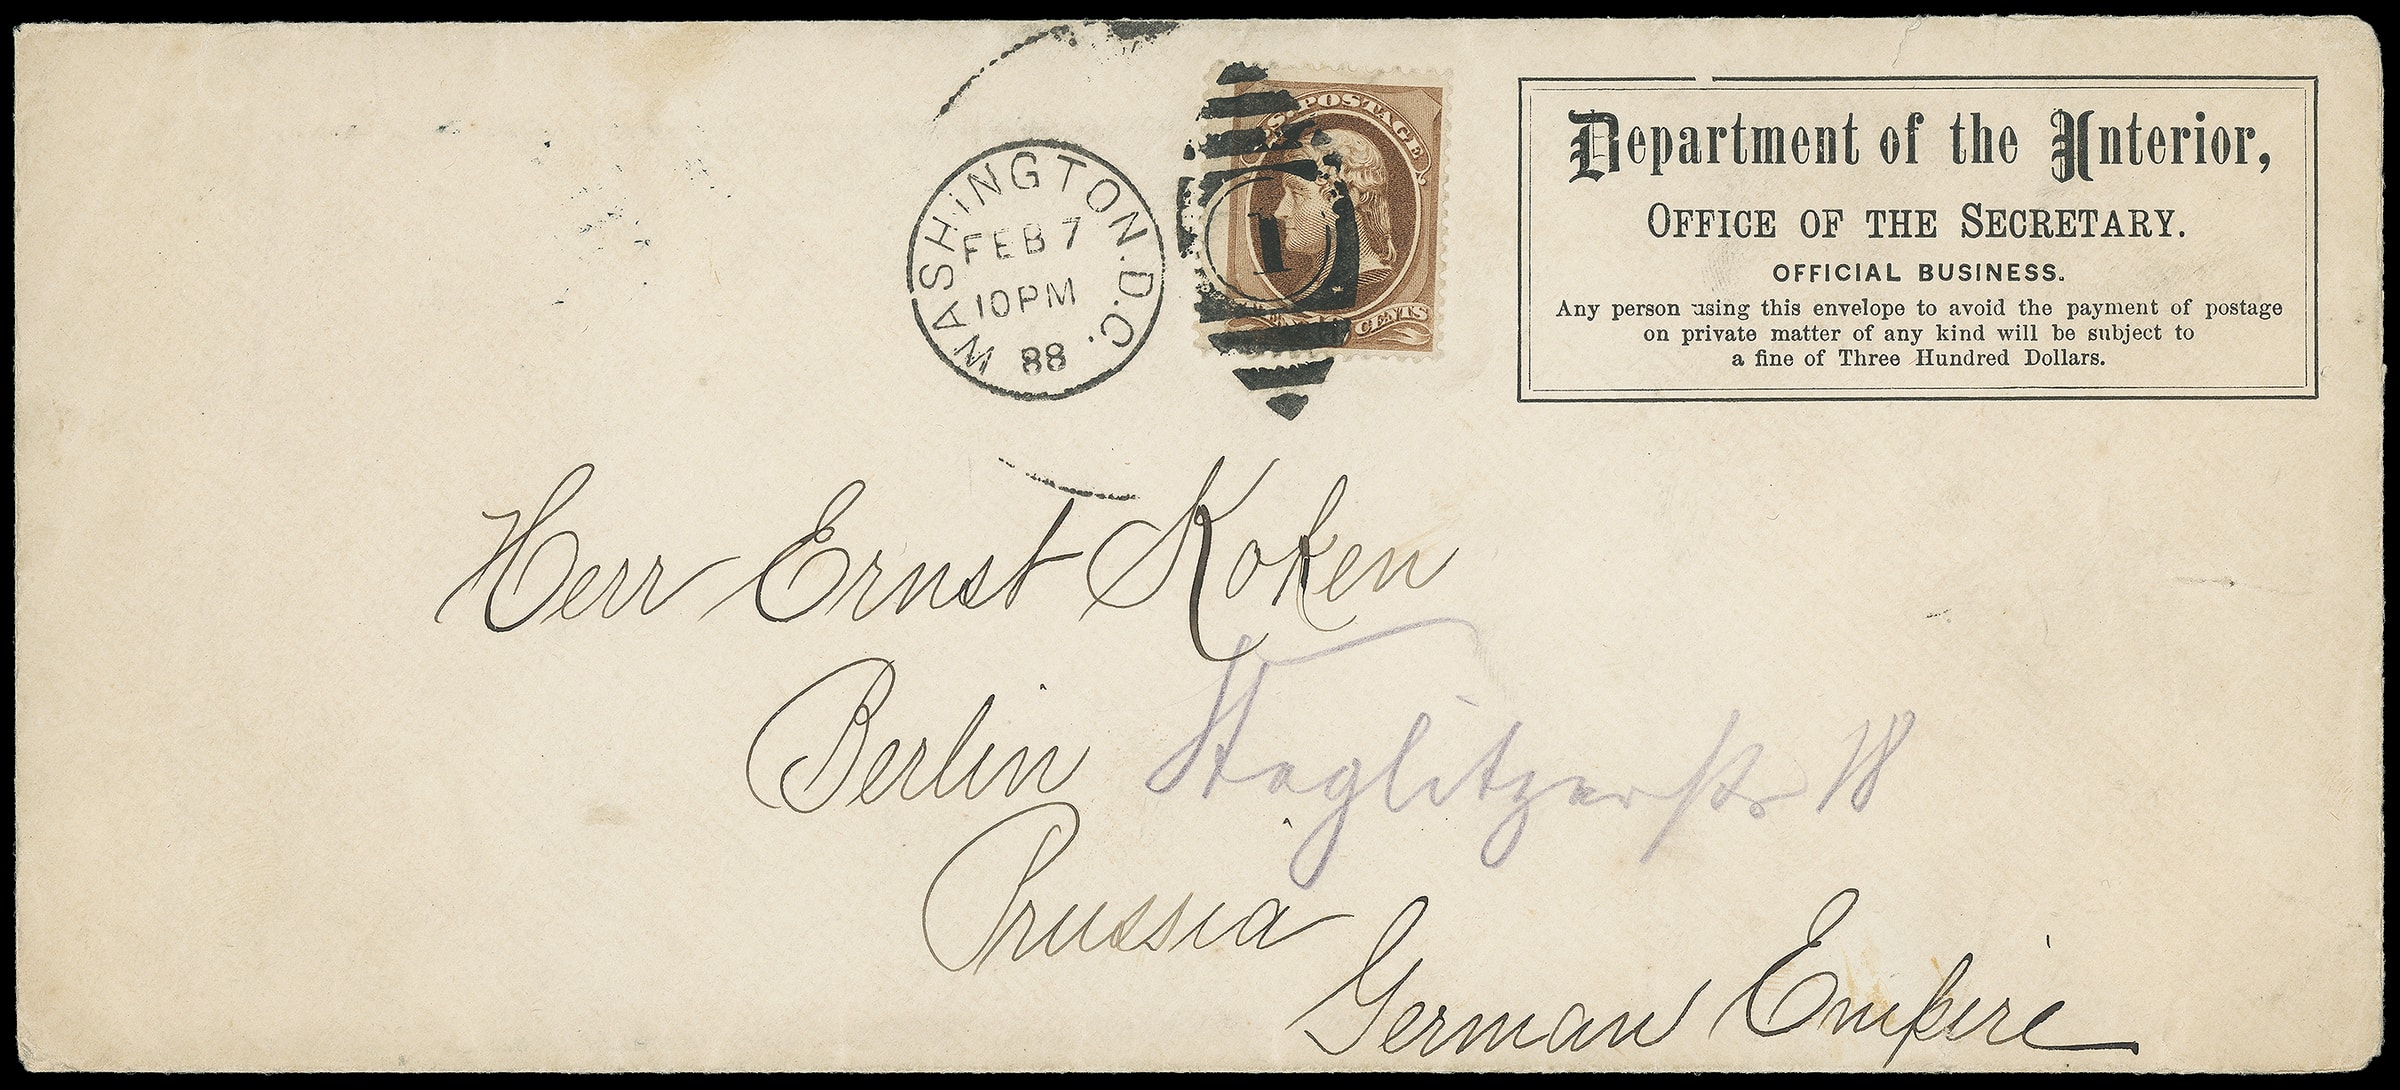 U.S. POSTAGE
CENTS
WASHINGTON. D.C.
FEB 7
10 PM
88
1
Department of the Interior,
OFFICE OF THE SECRETARY.
OFFICIAL BUSINESS.
Any person using this envelope to avoid the payment of postage
on private matter of any kind will be subject to
a fine of Three Hundred Dollars.
Herr Ernst Koken
Berlin Steglitzerstr 18
Prussia
German Empire